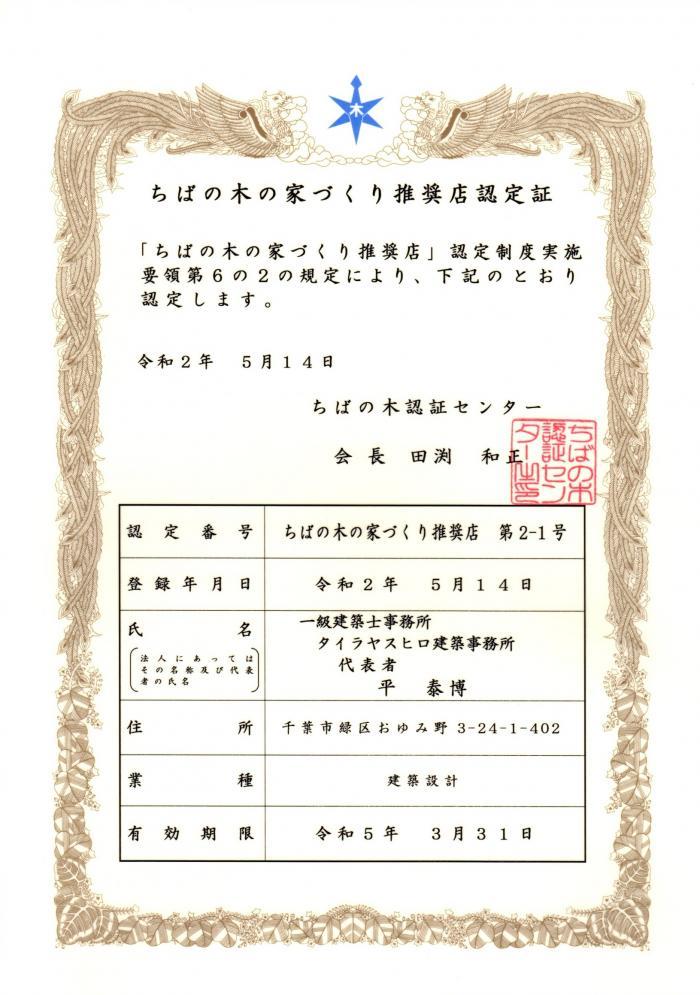 木
ちばの木の家づくり推奨店認定証
「ちばの木の家づくり推奨店」認定制度実施
要領第6の2の規定により、下記のとおり
認定します。
令和2年　5月14日
ちばの木認証センター
会長　田渕　和正
ちばの木
認証セン
ター之印
認定番号　ちばの木の家づくり推奨店　第2-1号
登録年月日　令和2年　5月14日
氏名
法人にあっては
その名称及び代表
者の氏名
一級建築士事務所
タイラヤスヒロ建築事務所
代表者
平　泰博
住所　千葉市緑区おゆみ野 3-24-1-402
業種　建築設計
有効期限　令和5年　3月31日